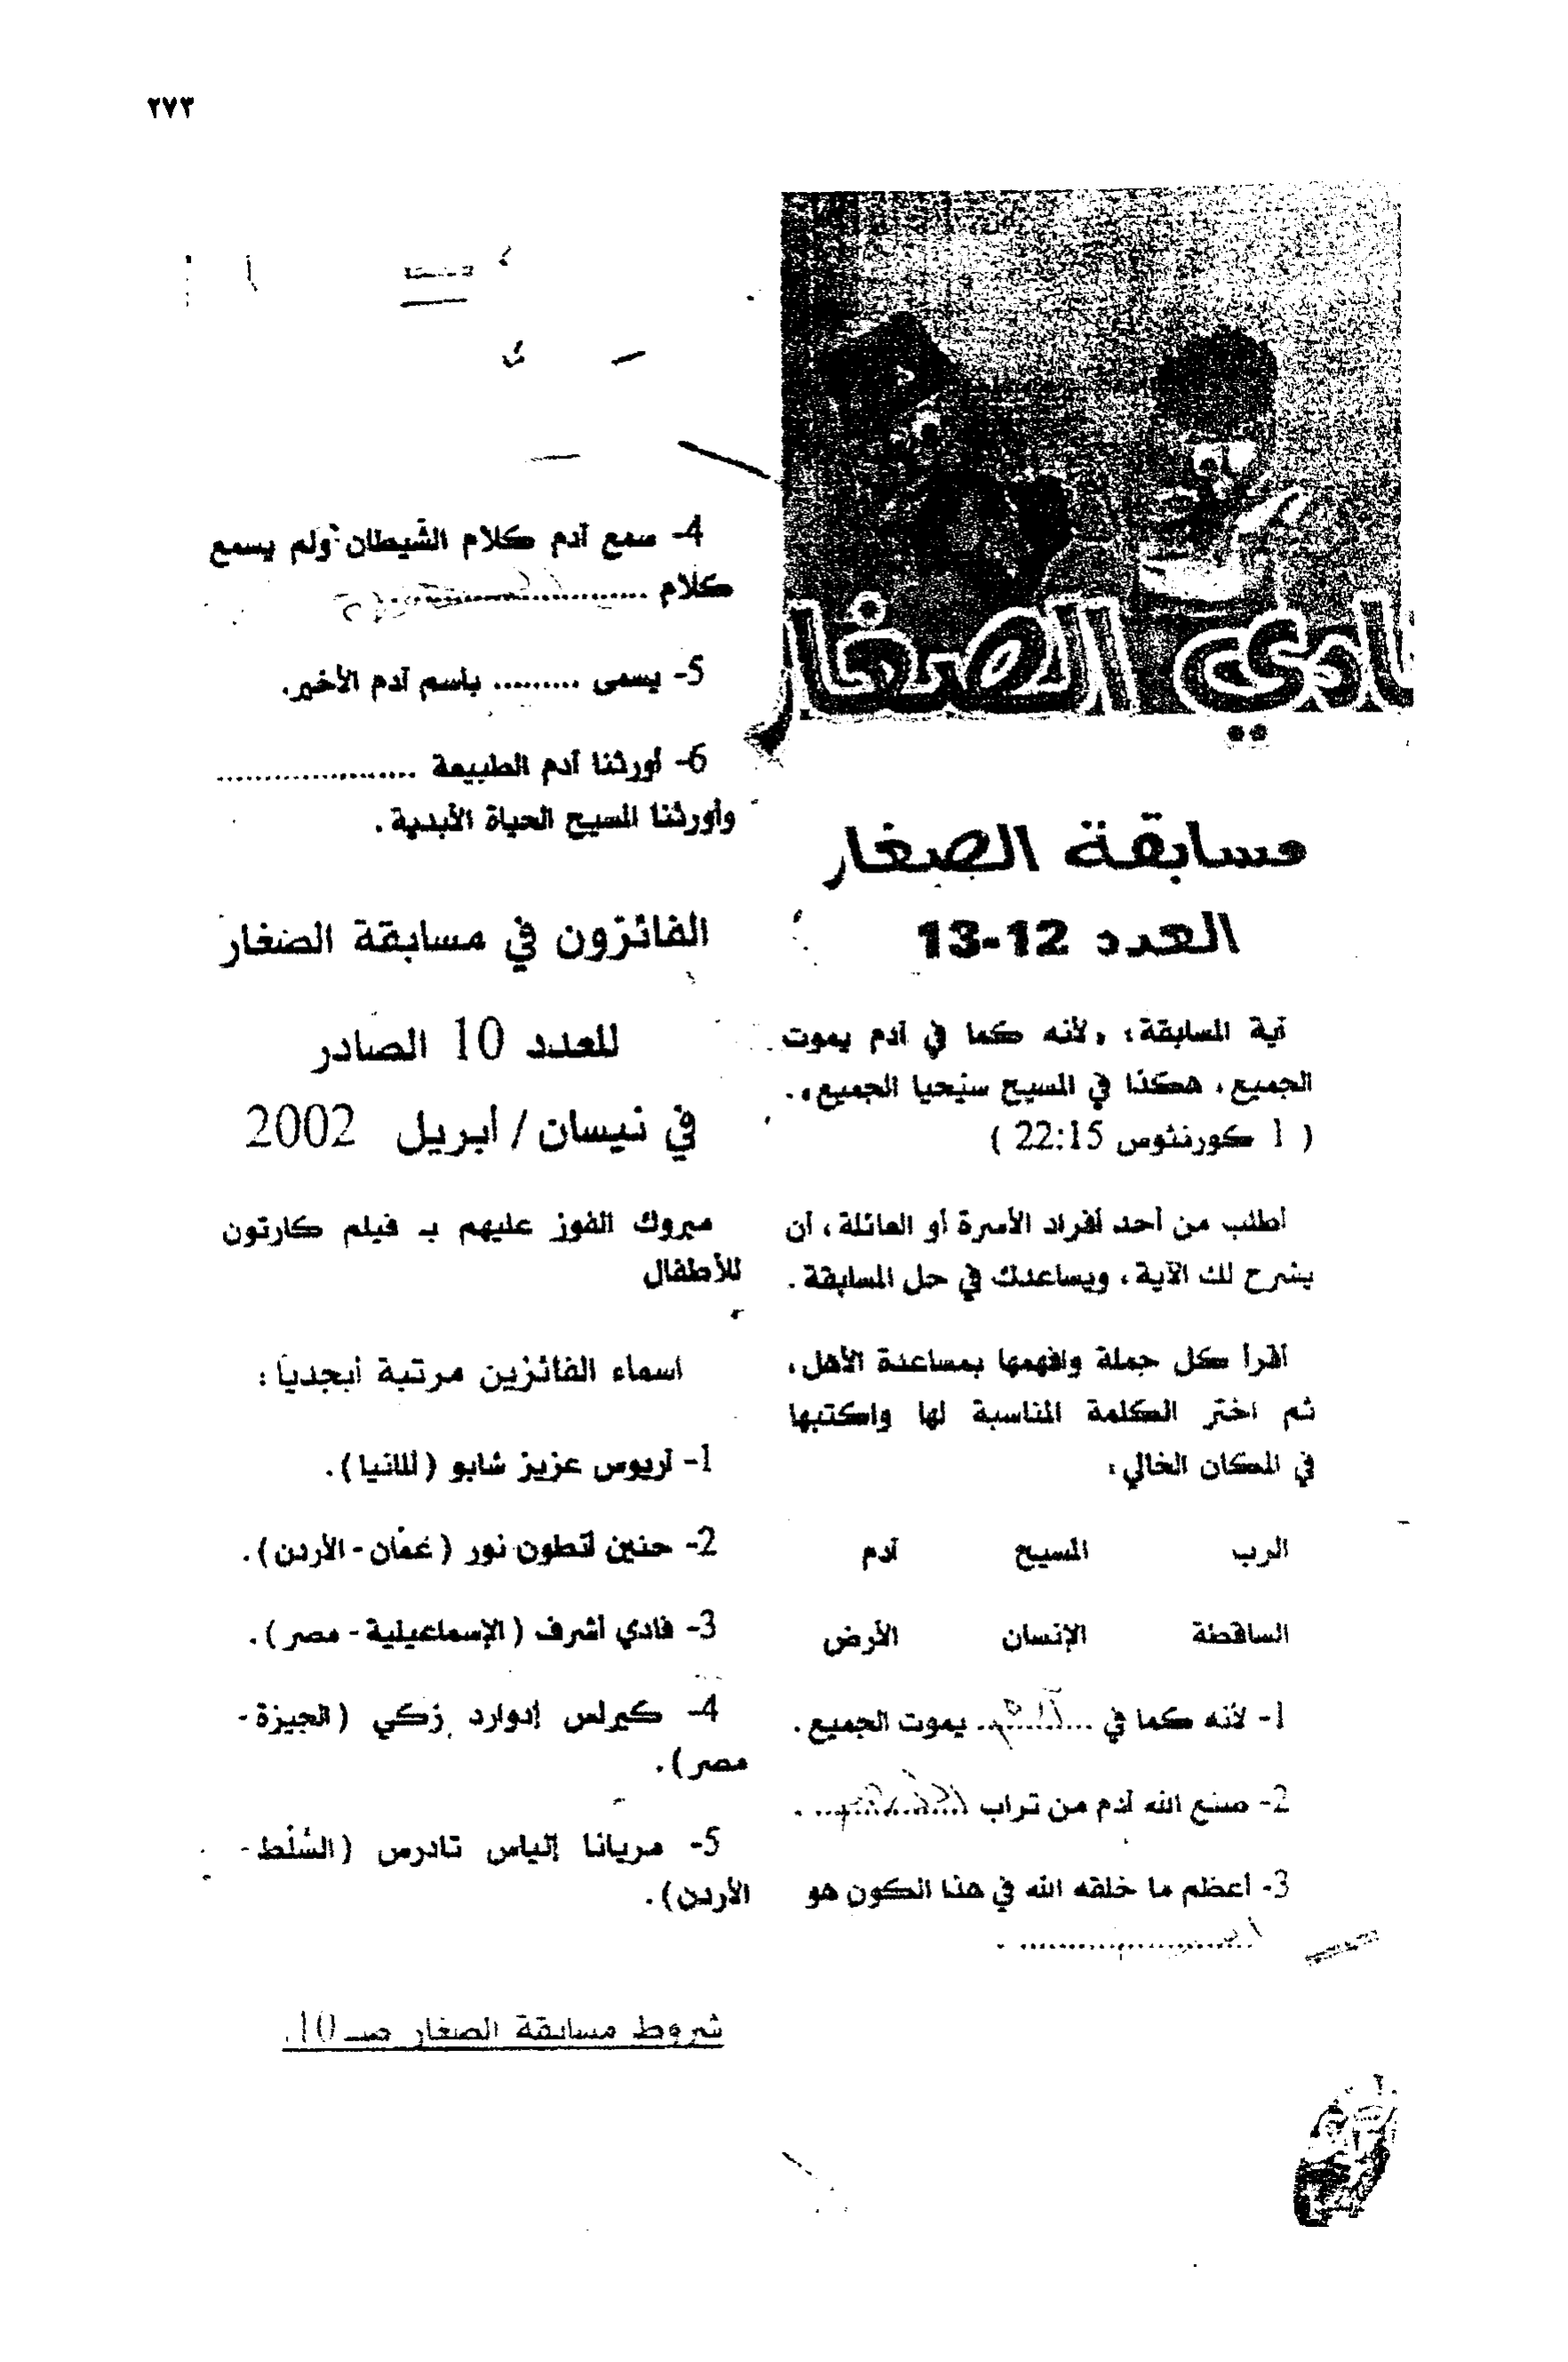 ٢٧٣
نادي الصغار
مسابقة الصغار
العدد 12-13
آية المسابقة: «لأنه كما في آدم يموت
الجميع، هكذا في المسيح سيُحيا الجميع».
( 1 كورنثوس 22:15 )
أطلب من أحد أفراد الأسرة أو العائلة، أن
يشرح لك الآية، ويساعدك في حل المسابقة.
اقرأ كل جملة وافهمها بمساعدة الأهل،
ثم اختر الكلمة المناسبة لها واكتبها
في المكان الخالي:
الرب المسيح آدم
الساقطة الإنسان الأرض
1- لأنه كما في ...آدم... يموت الجميع.
2- صنع الله آدم من تراب ...الأرض... .
3- أعظم ما خلقه الله في هذا الكون هو
........................ .
4- سمع آدم كلام الشيطان ولم يسمع
كلام ........................
5- يسمى ......... باسم آدم الأخير.
6- أورثنا آدم الطبيعة .....................
وأورثنا المسيح الحياة الأبدية.
الفائزون في مسابقة الصغار
للعدد 10 الصادر
في نيسان/ أبريل 2002
مبروك الفوز عليهم بـ فيلم كارتون
للأطفال
اسماء الفائزين مرتبة أبجدياً:
1- آريوس عزيز شابو (ألمانيا).
2- حنين أنطون نور (عمّان - الأردن).
3- فادي أشرف (الإسماعيلية - مصر).
4- كيرلس إدوارد زكي (الجيزة -
مصر).
5- مريانا إلياس تادرس (السَّلْط -
الأردن).
شروط مسابقة الصغار صـ 10.